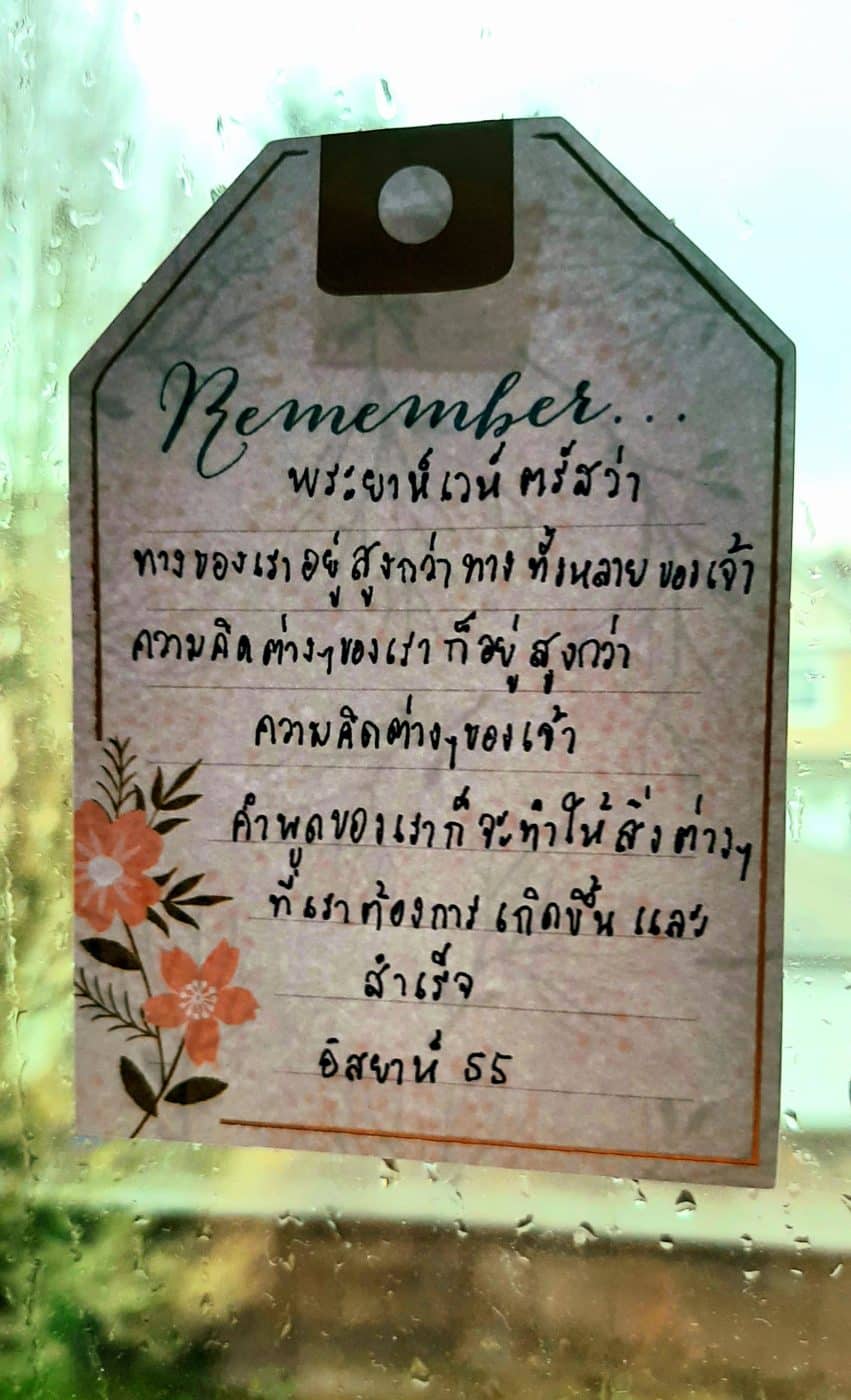 Remember...
พระยาห์เวห์ ตรัสว่า
ทางของเราอยู่สูงกว่าทาง ทั้งหลาย ของเจ้า
ความคิดต่างๆของเรา ก็อยู่สูงกว่า
ความคิดต่างๆของเจ้า
คำพูดของเราก็ จะทำให้ สิ่งต่างๆ
ที่เราต้องการ เกิดขึ้น และ
สำเร็จ
อิสยาห์ 55